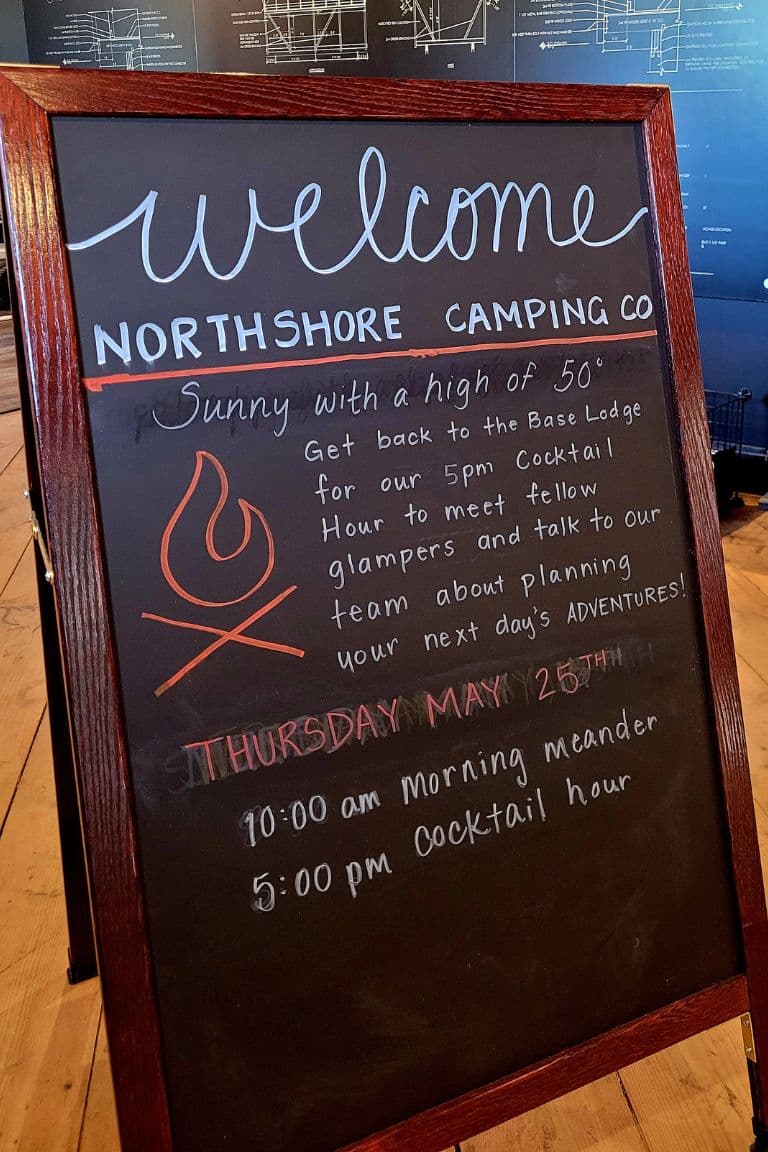 welcome
NORTHSHORE CAMPING CO
Sunny with a high of 50°
Get back to the Base Lodge
for our 5pm Cocktail
Hour to meet fellow
glampers and talk to our
team about planning
your next day's ADVENTURES!
THURSDAY MAY 25TH
10:00 am Morning meander
5:00 pm Cocktail hour